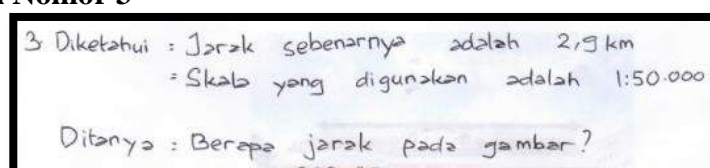 3. Diketahui : Jarak sebenarnya adalah 2,9 km
: Skala yang digunakan adalah 1:50.000
Ditanya : Berapa jarak pada gambar?